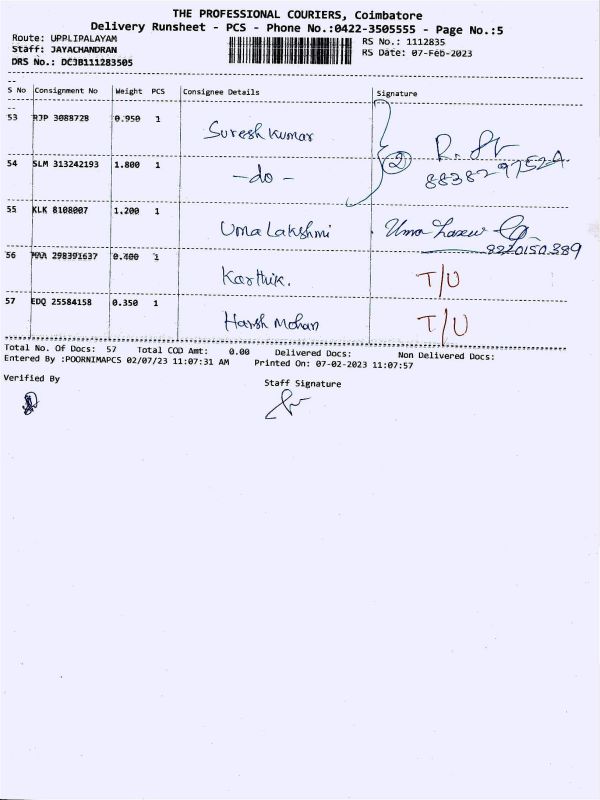 THE PROFESSIONAL COURIERS, Coimbatore
Delivery Runsheet - PCS - Phone No.:0422-3505555 - Page No.:5
Route: UPPLIPALAYAM RS No.: 1112835
Staff: JAYACHANDRAN RS Date: 07-Feb-2023
DRS No.: DCJB111283505
S No Consignment No Weight PCS Consignee Details Signature
53 RJP 3088728 0.950 1 Suresh kumar
54 SLM 313242193 1.800 1 -do- 2
55 KLK 8108007 1.200 1 Uma Lakshmi Uma 8220150389
56 MAA 298391637 0.400 1 Karthik. T/U
57 EDQ 25584158 0.350 1 Harsh Mohan T/U
Total No. Of Docs: 57 Total COD Amt: 0.00 Delivered Docs: Non Delivered Docs:
Entered By :POORNIMAPCS 02/07/23 11:07:31 AM Printed On: 07-02-2023 11:07:57
Verified By Staff Signature